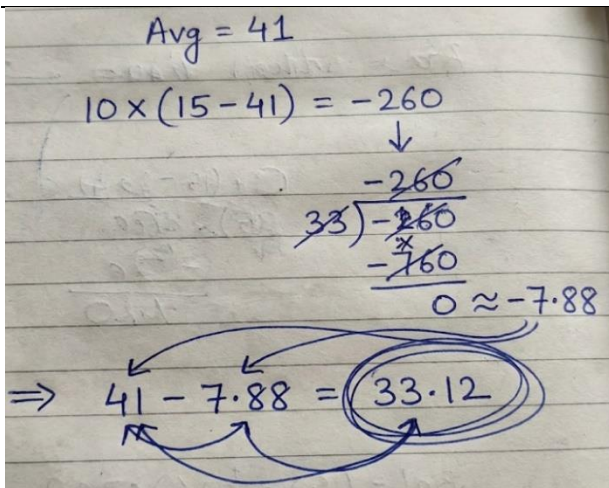 Avg = 41
10 × (15 - 41) = -260
↓
-260
33 ) -260
× 
-760
0 ≈ -7.88
⇒ 41 - 7.88 = 33.12